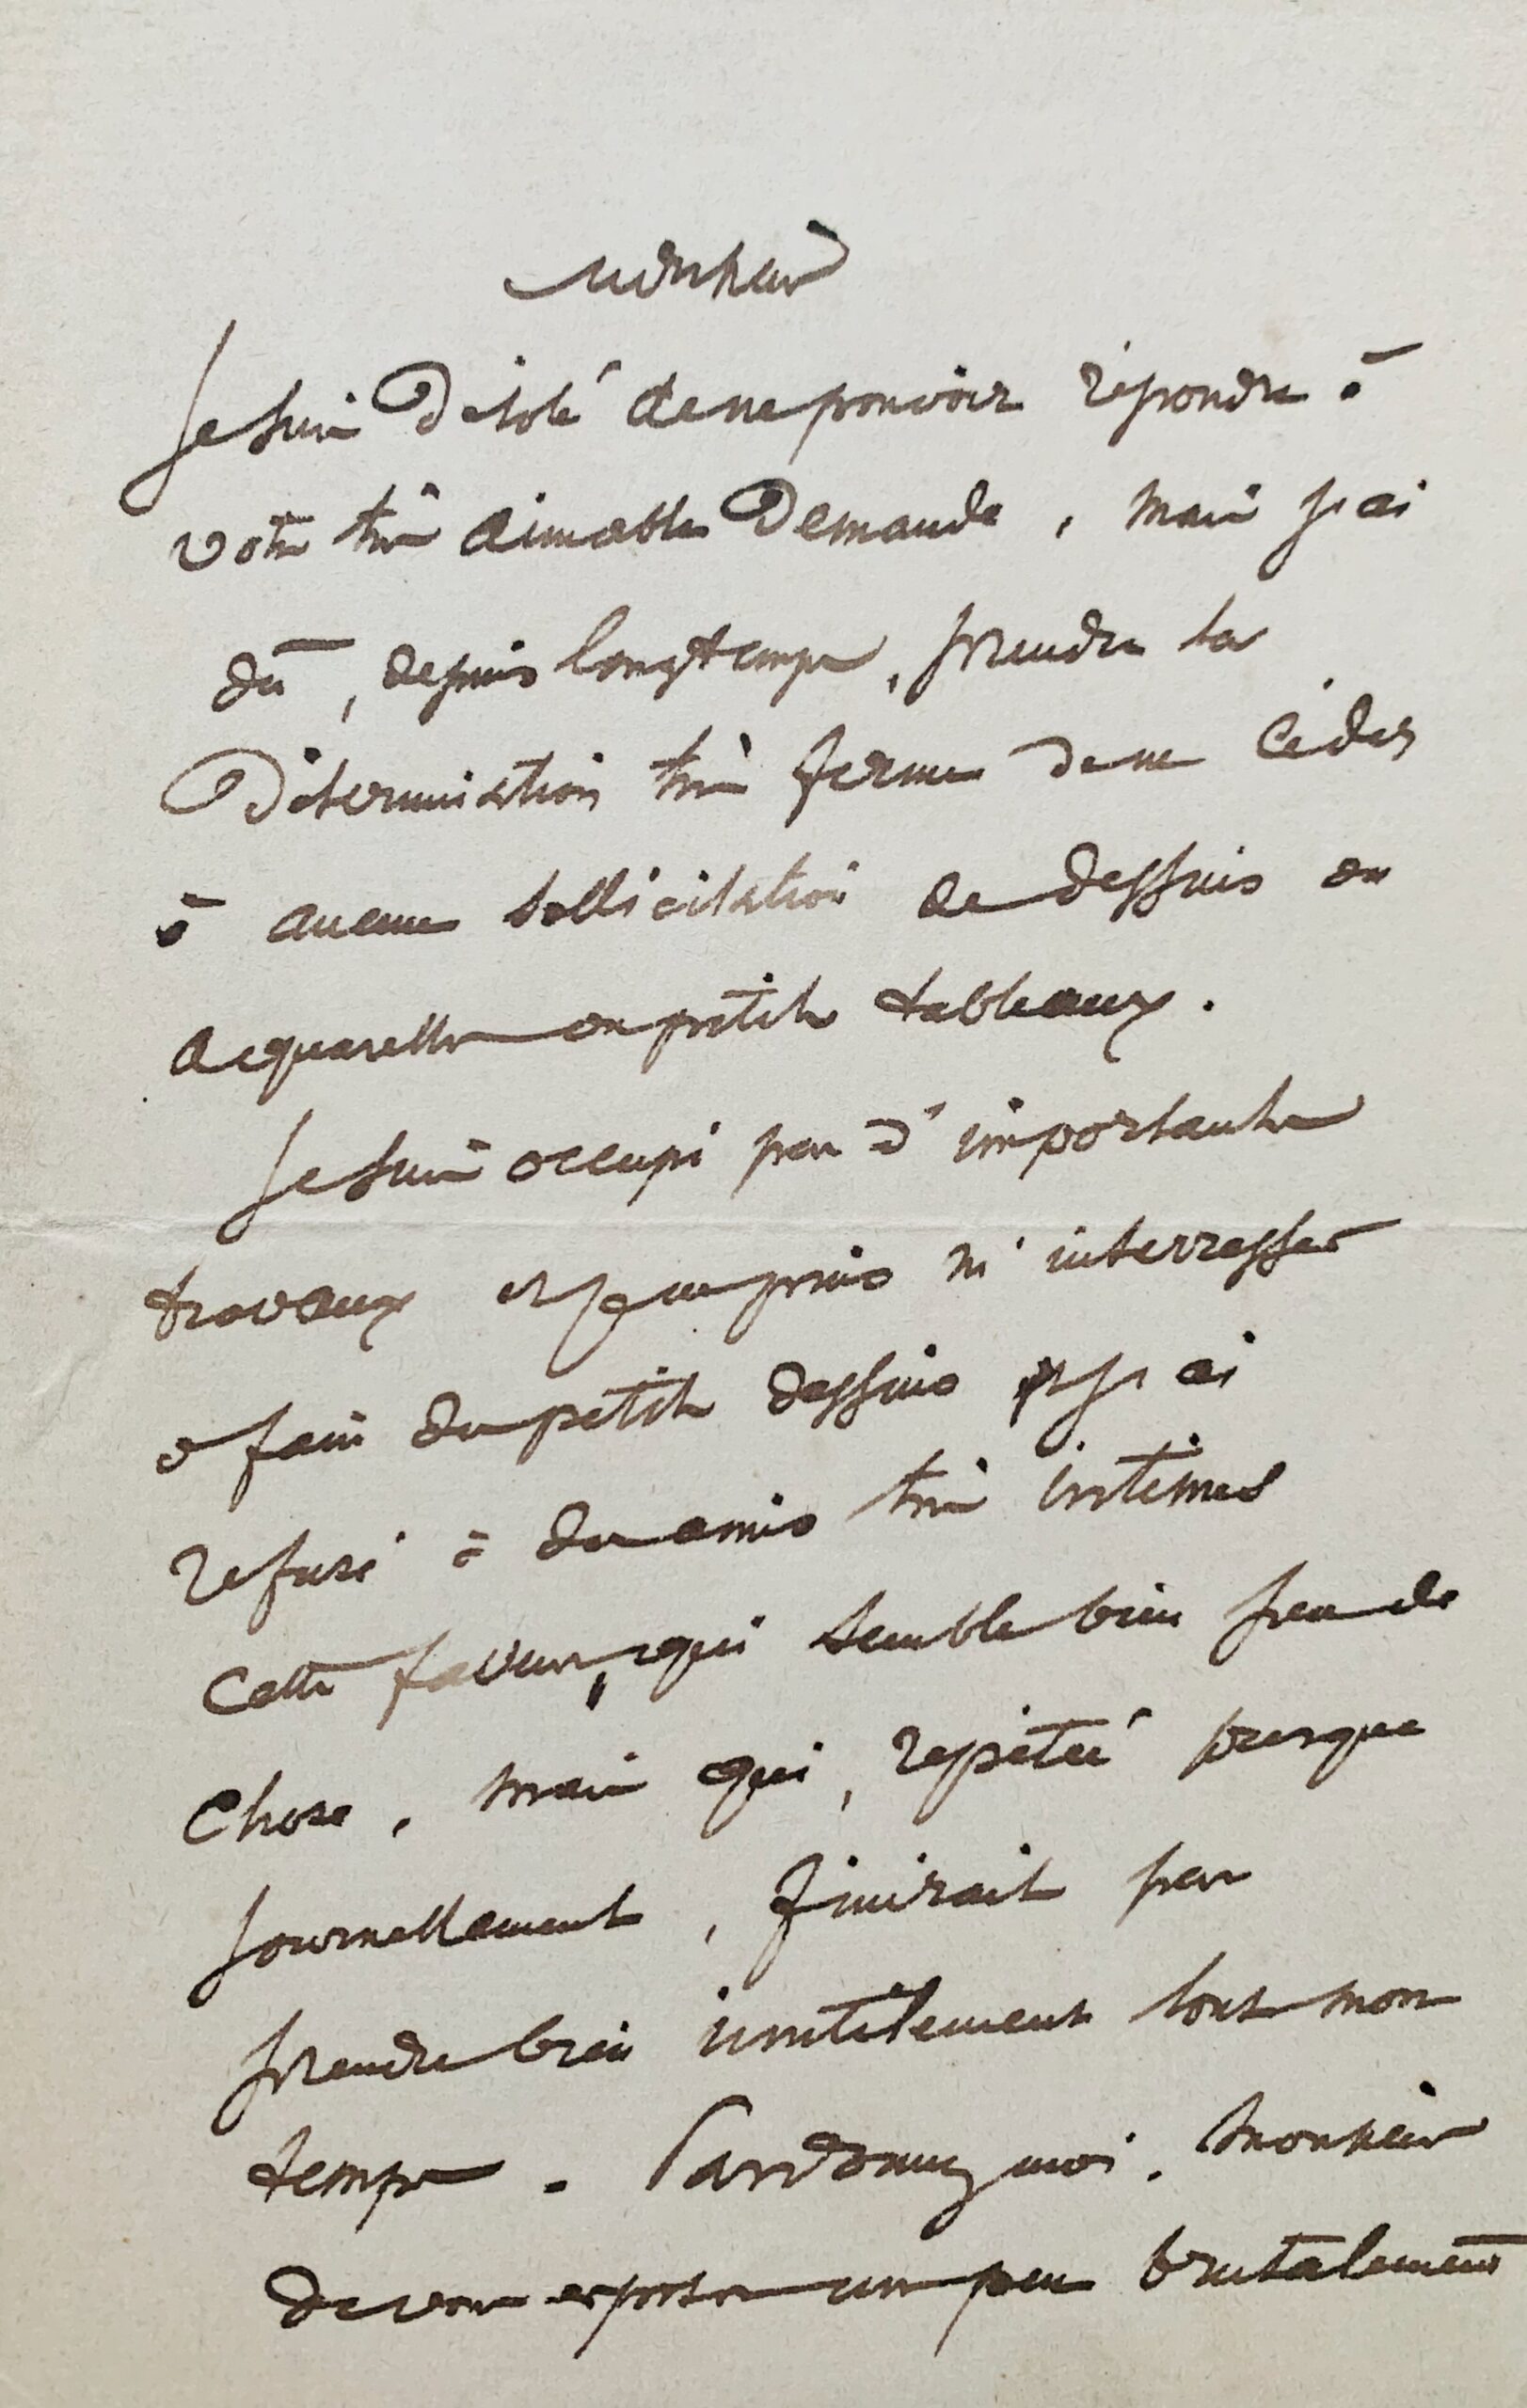 Monsieur
Je suis Désolé de ne pouvoir répondre à
votre très aimable Demande, mais j'ai
dû, depuis longtemps, prendre la
Détermination très ferme de ne céder
à aucune sollicitation de dessins ou
acquarelles ou petits tableaux.
Je suis occupé par d'importants
travaux et je ne puis m'interresser
à faire des petits dessins et j'ai
refusé à des amis très intimes
cette faveur, qui semble bien peu de
chose, mais qui, repétée presque
journellement, finirait par
prendre bien inutilement tout mon
temps. Pardonnez moi, Monsieur
de vous exposer un peu brutalement